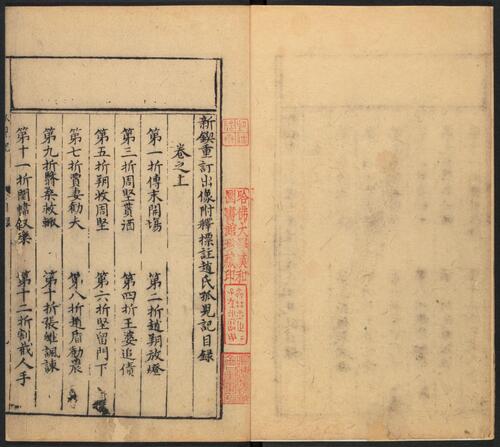 哈佛大學漢和
圖書館珍藏印
新鍥重訂出像附釋標註趙氏孤兒記目錄
卷之上
第一折傳末開場　第二折趙朔放燈
第三折周堅貰酒　第四折王婆追債
第五折朔救周堅　第六折堅留門下
第七折賈妻勸夫　第八折趙盾勸農
第九折翳桑救輒　第十折張維諷諫
第十一折閨幃叙樂　第十二折割截人手